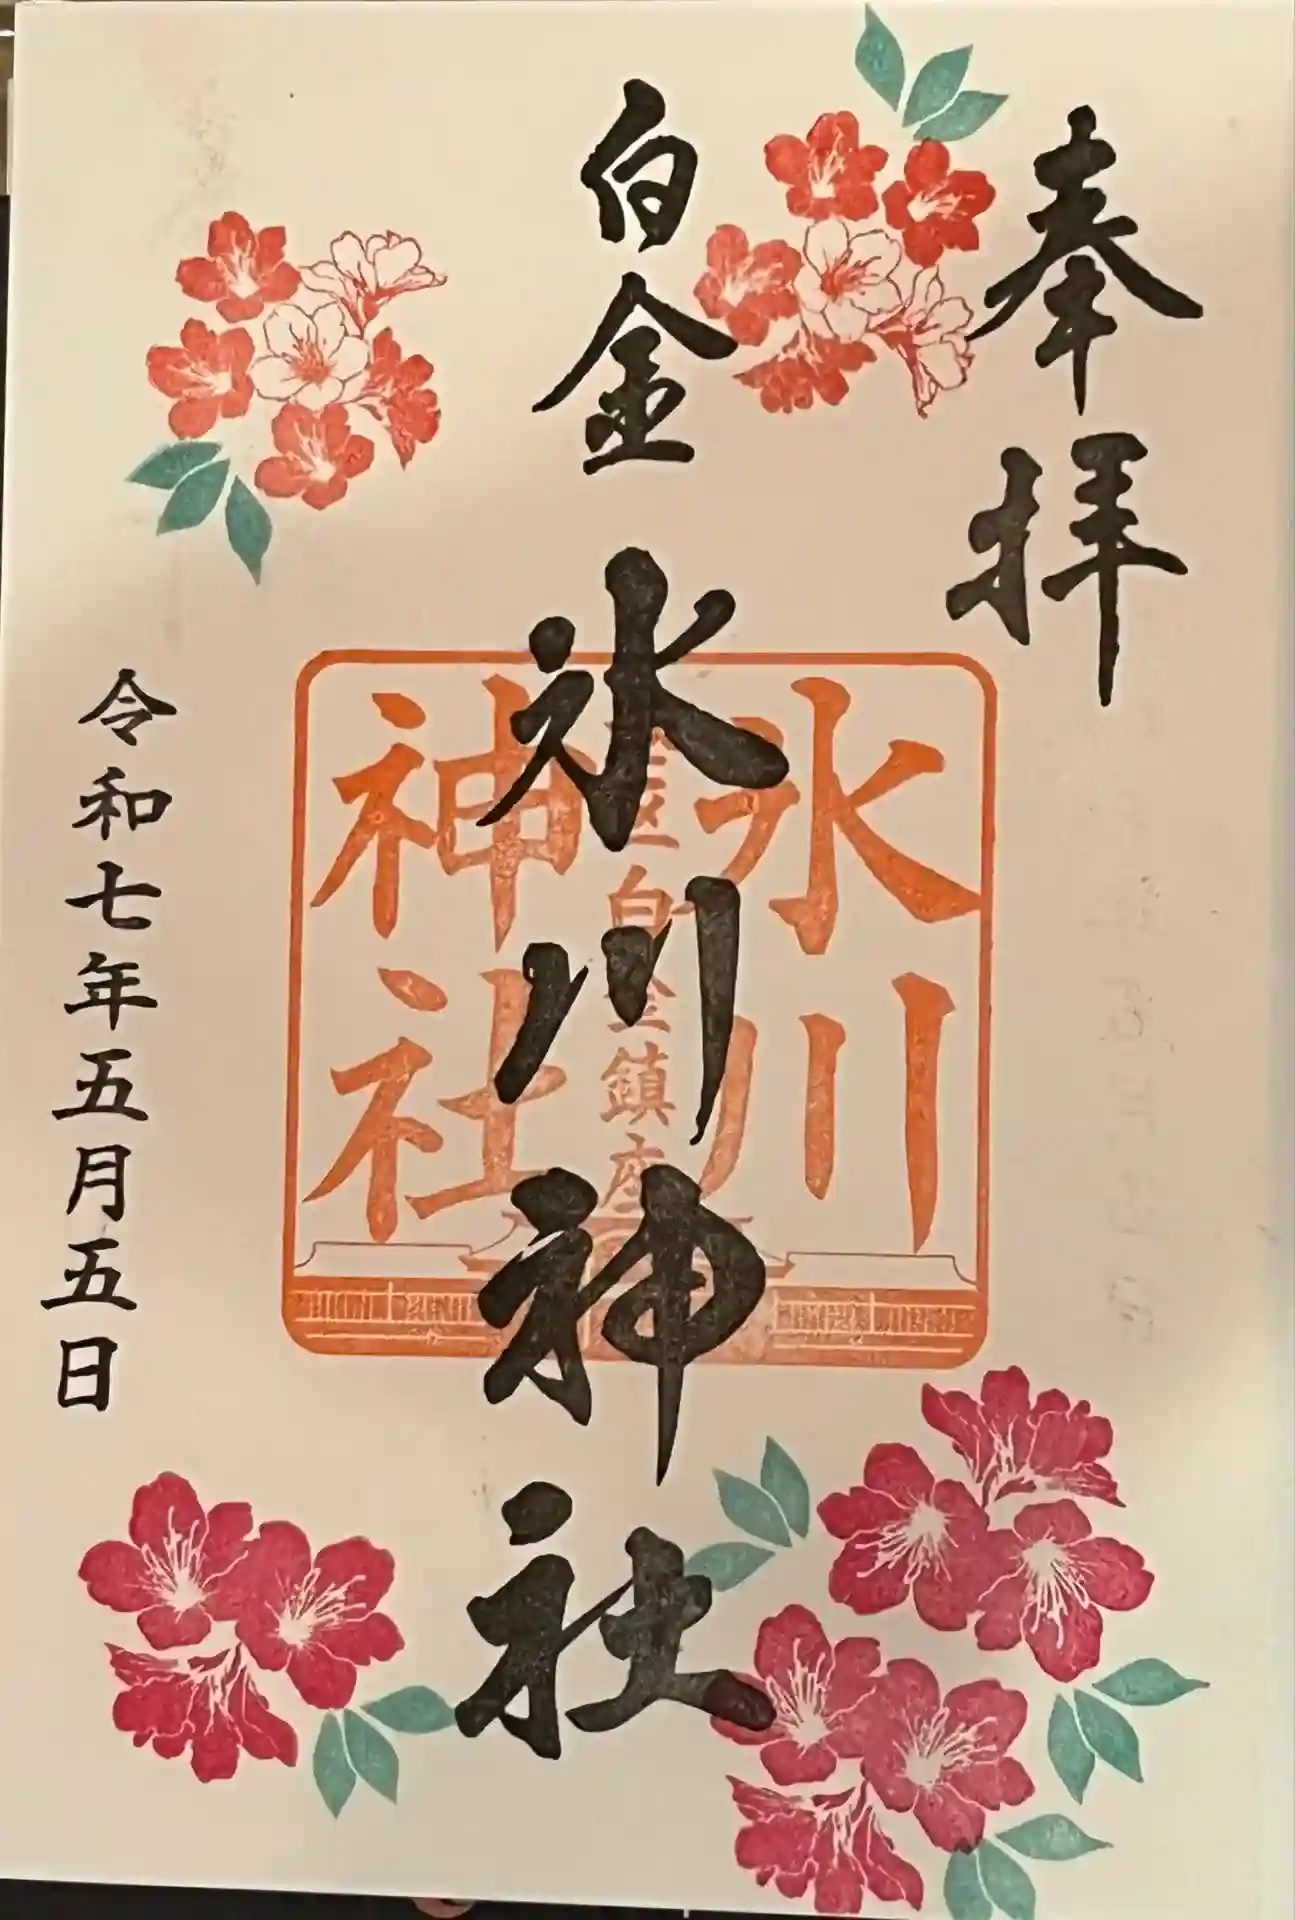 奉拝
白金 氷川神社
氷川
白金鎮座
神社
令和七年五月五日